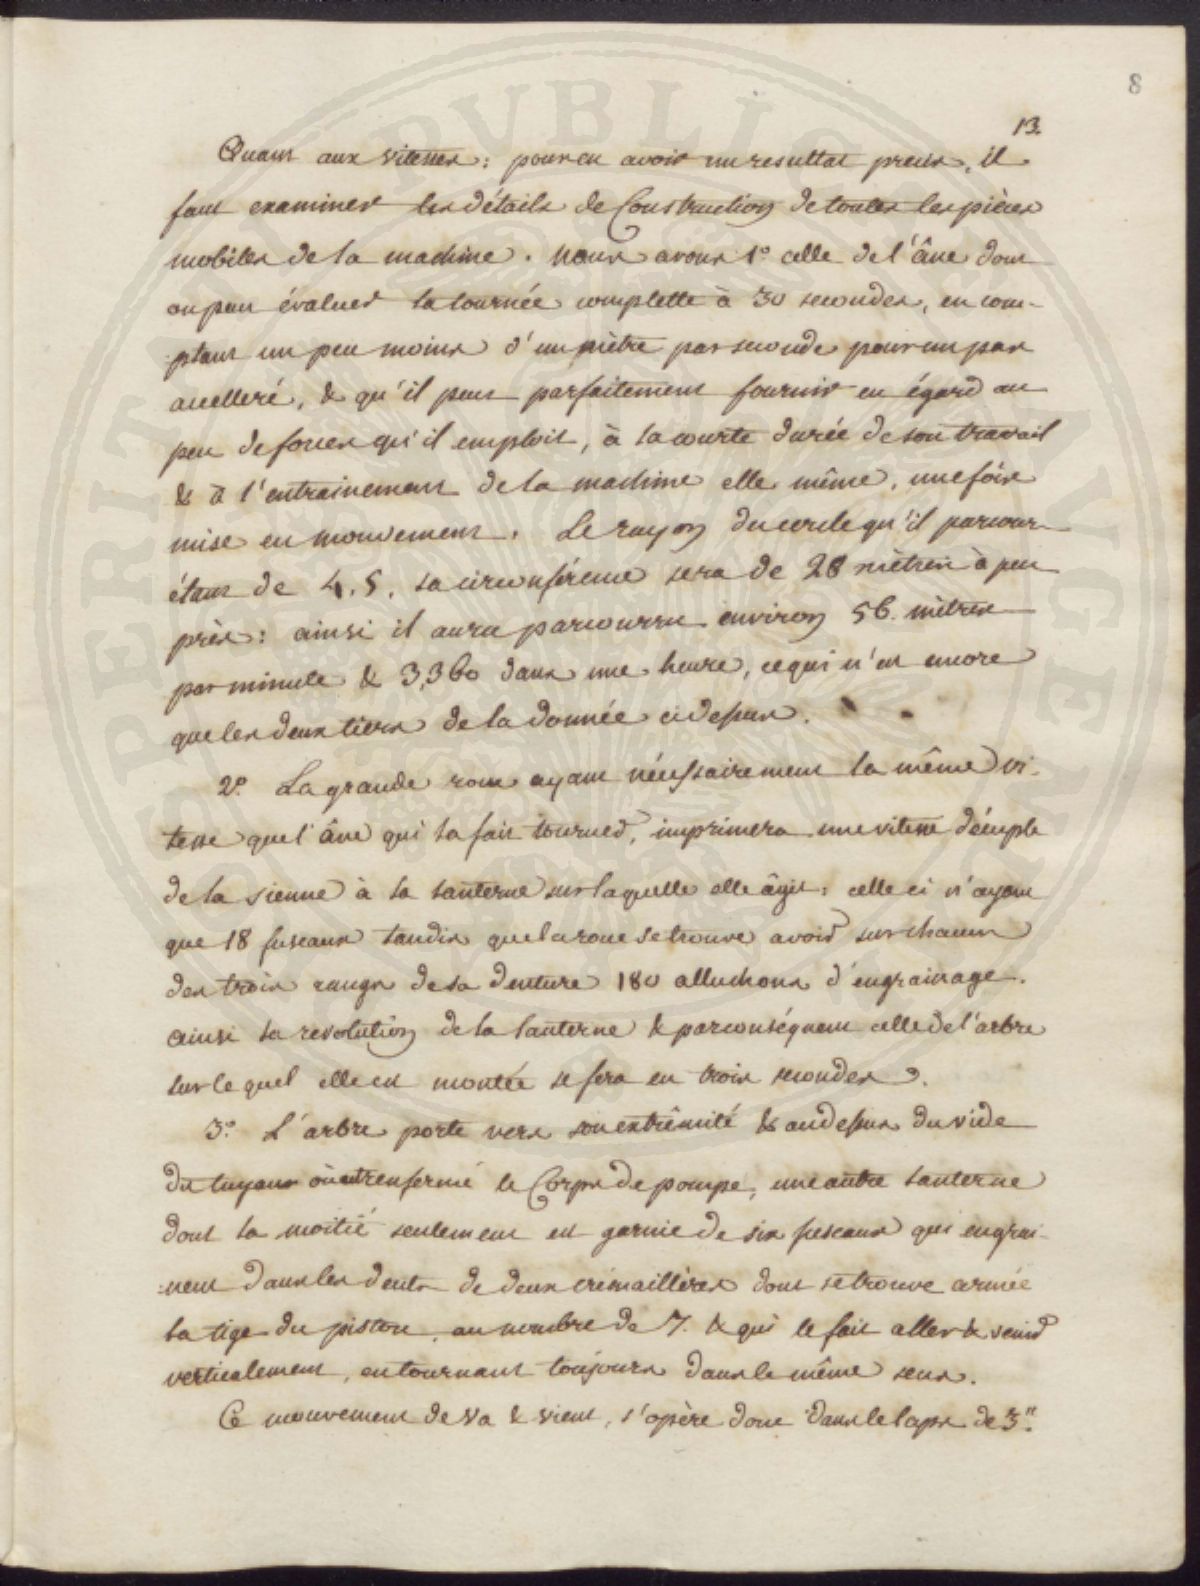 8
13.
Quant aux vitesses : pour en avoir un resultat precis, il
faut examiner les détails de Construction de toutes les pièces
mobiles de la machine. nous avons 1º celle de l'âne dont
on peut évaluer la tournée complette à 30 secondes, en com-
ptant un peu moins d'un mètre par seconde pour un pas
accelleré, & qu'il peut parfaitement fournir eu égard au
peu de forces qu'il emploit, à la courte durée de son travail
& à l'entrainement de la machine elle même, une fois
mise en mouvement. Le rayon du cercle qu'il parcour
étant de 4.5. sa circonférence sera de 28 mètres à peu
près : ainsi il aura parcourru environ 56. mètres
par minute & 3,360 dans une heure, ce qui n'est encore
que les deux tiers de la donnée ci dessus.
2º. La grande roue ayant nécessairement la même vi-
tesse que l'âne qui la fait tourner, imprimera une vitesse décuple
de la sienne à la lanterne sur laquelle elle âgit : celle ci n'ayant
que 18 fuseaux tandis que la roue se trouve avoir sur chacun
des trois rangs de sa denture 180 alluchons d'engrainage.
ainsi la revolution de la lanterne & par conséquent celle de l'arbre
sur le quel elle est montée se fera en trois secondes.
3º. L'arbre porte vers son extrêmité & au dessus du vide
du tuyau où est renfermé le Corps de pompe, une autre lanterne
dont la moitié seulement est garnie de six fuseaux qui engrai-
nent dans les dents de deux crémaillères dont se trouve armée
la tige du piston, au nombre de 7. & qui le fait aller & venir
verticalement, en tournant toujours dans le même sens.
Ce mouvement de va & vient, s'opère donc dans le laps de 3".